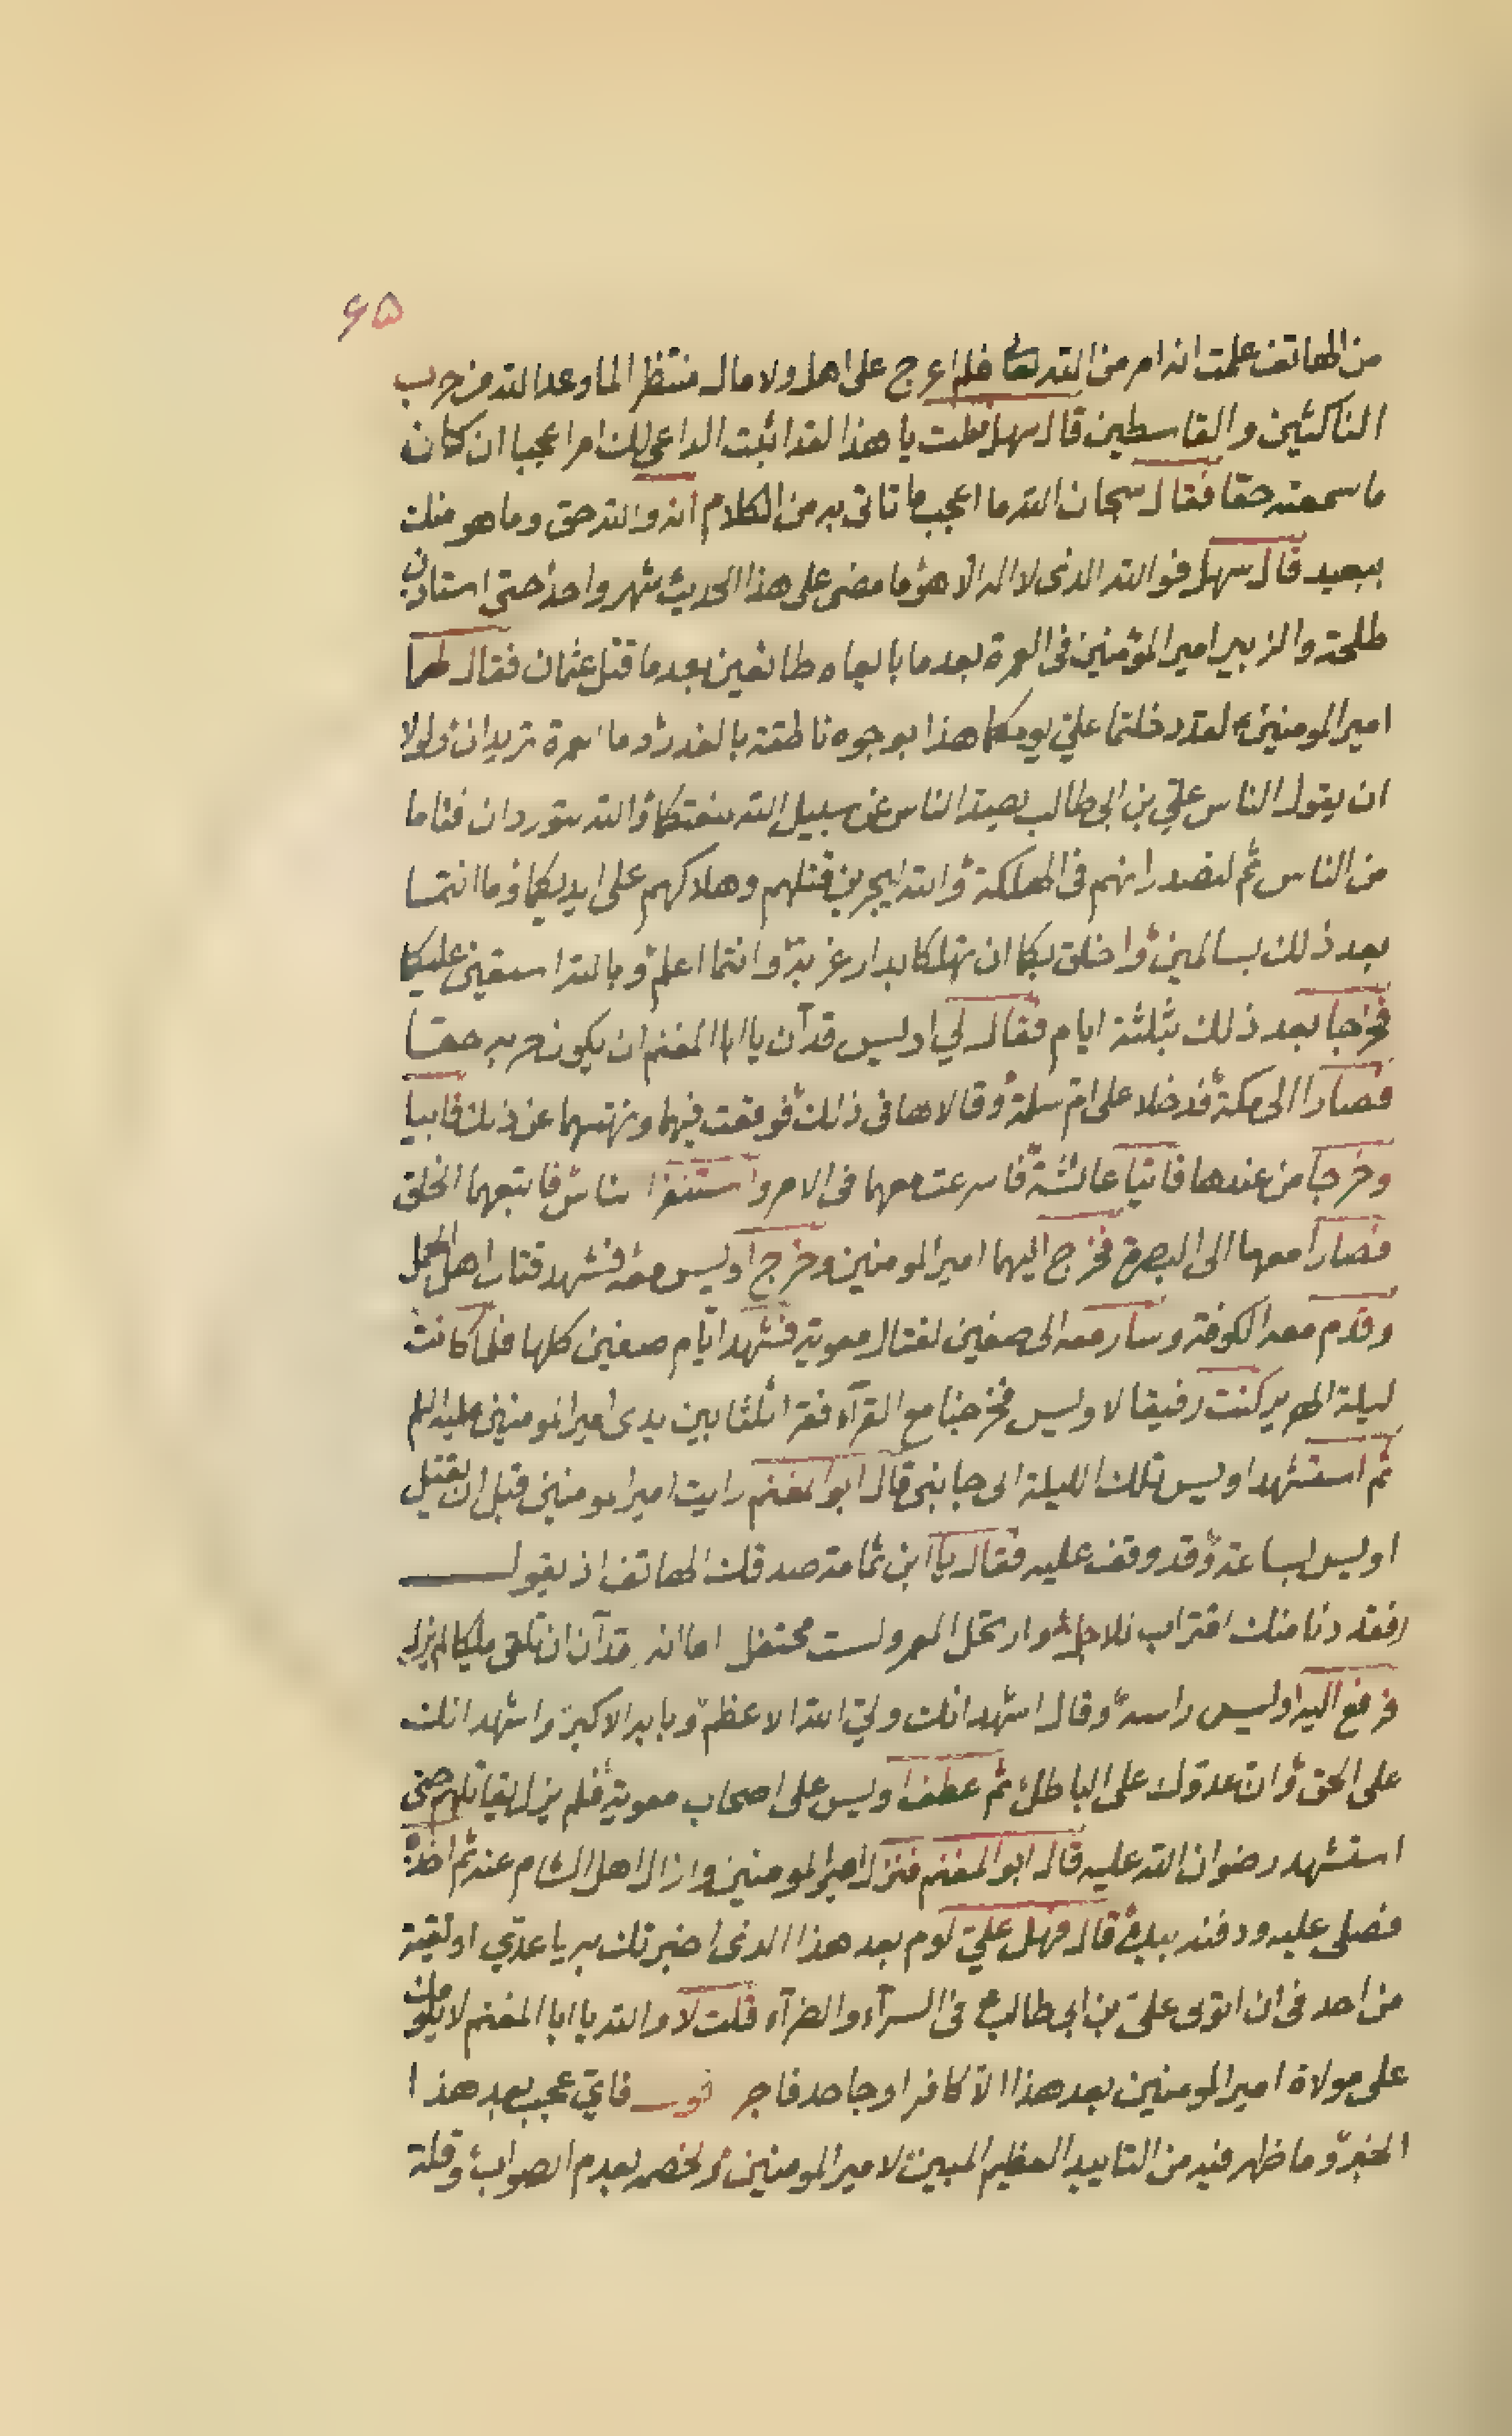 ۶۵
من الهاتف علمت انه امر من الله تعا فلم اعرج على اهل ولا مال منتظر الما وعد الله من حرب
الناكثين والقاسطين قال سهل فقلت يا هذا لقد اثبت الداعى لك امرا عجبا ان كان
ما سمعته حقا فقال سبحان الله ما اعجب ما تاتى به من الكلام انه والله حق وما هو منك
ببعيد قال سهل فو الله الذى لا اله الا هو ما مضى على هذا الحديث شهر واحد حتى استاذن
طلحة والزبير امير المؤمنين فى العمرة بعد ما بايعاه طائعين بعد ما قتل عثمان فقال لهما
امير المومنين لقد دخلتما علي يومكما هذا بوجوه ناطقة بالغدر وما العمرة تريدان ولولا
ان يقول الناس علي بن ابى طالب يصد الناس عن سبيل الله منعتكما والله ستوردان فئاما
من الناس ثم لتصدرانهم فى الهلكة والله ليجرين قتلهم وهلاكهم على ايديكما وما انتما
بعد ذلك بسالمين واخلق بكما ان تهلكا بدار غربة وانتما اعلم وبالله استعين عليكما
فخرجا بعد ذلك بثلثة ايام فقال لي اويس قد آن يا ابا المغنم ان يكون حربه حقا
فصارا الى مكة فدخلا على ام سلمة وقالا لها فى ذلك فوقعت فيهما ونهتهما عن ذلك فابيا
وخرجا من عندها فاتيا عائشة فاسرعت معهما فى الامر واستنفرا ناس فاتبعهما الخلق
فصارا معهما الى البصرة فخرج اليهما امير المومنين وخرج اويس معه فشهد قتال اهل الجمل
وقدم معه الكوفة وسار معه الى صفين لقتال معوية فشهد ايام صفين كلها فلما كانت
ليلة الهرير كنت رفيقا لاويس فخرجنا مع القرآء فقرا ثلثا بين يدى امير المومنين عليه السلم
ثم استشهد اويس تلك الليلة الى جانبى قال ابو المغنم رايت امير المومنين قبل ان يقتل
اويس بساعة وقد وقف عليه فقال يا ابن ثمامة صدقك الهاتف اذ يقول
فقد دنا منك اقتراب للاجل وارتحل العمر ولست محتفل اما انه قد آن ان تلقى مليكا لم يزل
فرفع اليه اويس راسه وقال اشهد انك ولي الله الاعظم وبابه الاكبر واشهد انك
على الحق وان عدوك على الباطل ثم عطف اويس على اصحاب معوية فلم يزل يقاتلهم حتى
استشهد رضوان الله عليه قال ابو المغنم فنزل امير المومنين وازال اهل الشام عنه ثم اخذه
فصلى عليه ودفنه بيده قال فهل علي لوم بعد هذا الذى اخبرتك به يا عدي او تقية
من احد فى ان اتولى علي بن ابى طالب فى السرآء والضرآء قلت لا والله يا ابا المغنم لا يلومك
على مولاة امير المومنين بعد هذا الا كافر او جاحد فاجر قول فاي عجب بعد هذا
الخبر وما ظهر فيه من التاييد العظيم المبين لامير المومنين ولخصمه بعدم الصواب وقلة